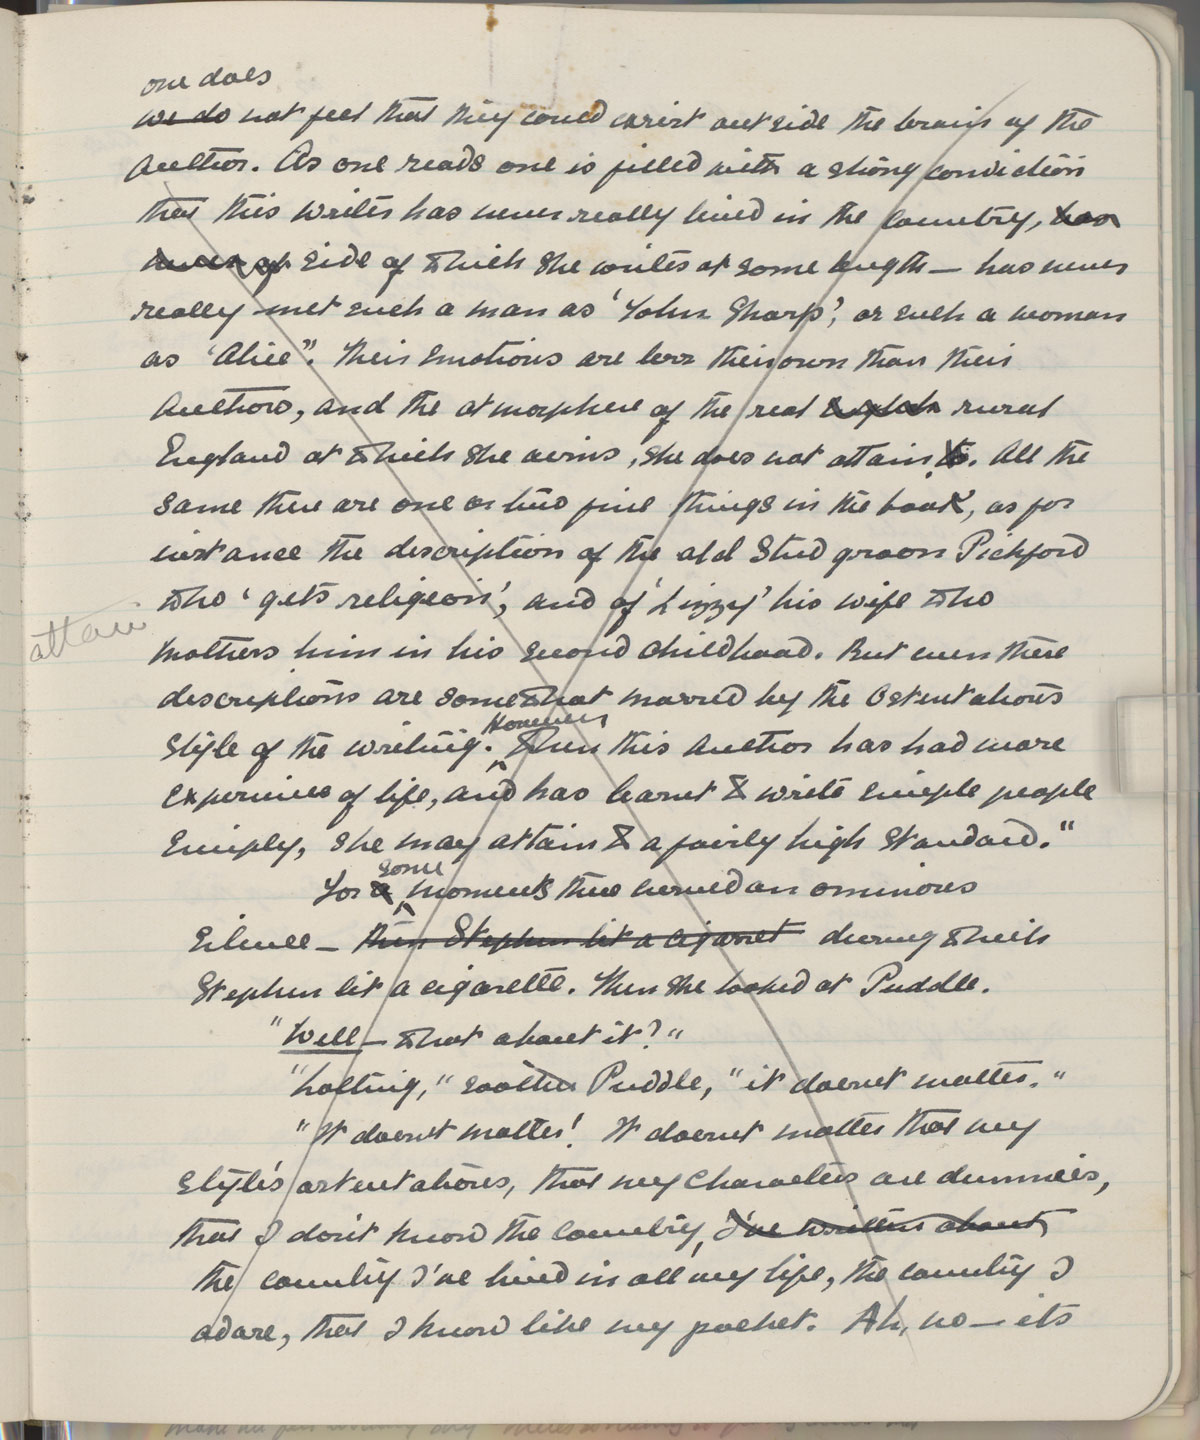 one does
we do not feel that they could exist outside the brain of the
Author. As one reads one is filled with a strong conviction
that this writer has never really lived in the country, has
never of side of which she writes at some length – has never
really met such a man as 'John Sharp', or such a woman
as 'Alice". Their emotions are less their own than their
Authors, and the atmosphere of the real English rural
England at which she aims, she does not attain to. All the
same there are one or two fine things in the book, as for
instance the description of the old Stud groom Pickford
who 'gets religion', and of 'Lizzy' his wife who
attain
mothers him in his second childhood. But even these
descriptions are somewhat marred by the Ostentatious
However
style of the writing. When this Author has had more
experience of life, and has learnt to write simple people
simply, she may attain to a fairly high standard."
some
For a moments there ensued an ominous
silence – then Stephen lit a cigaret during which
Stephen lit a cigarette. Then she looked at Puddle.
"Well – what about it?"
"Nothing," soothed Puddle, "it doesnt matter."
"It doesn't matter! It doesnt matter that my
style's ostentatious, that my characters are dummies,
that I don't know the country, I've written about
the country I've lived in all my life, the country I
adore, that I know like my pocket. Ah, no – its